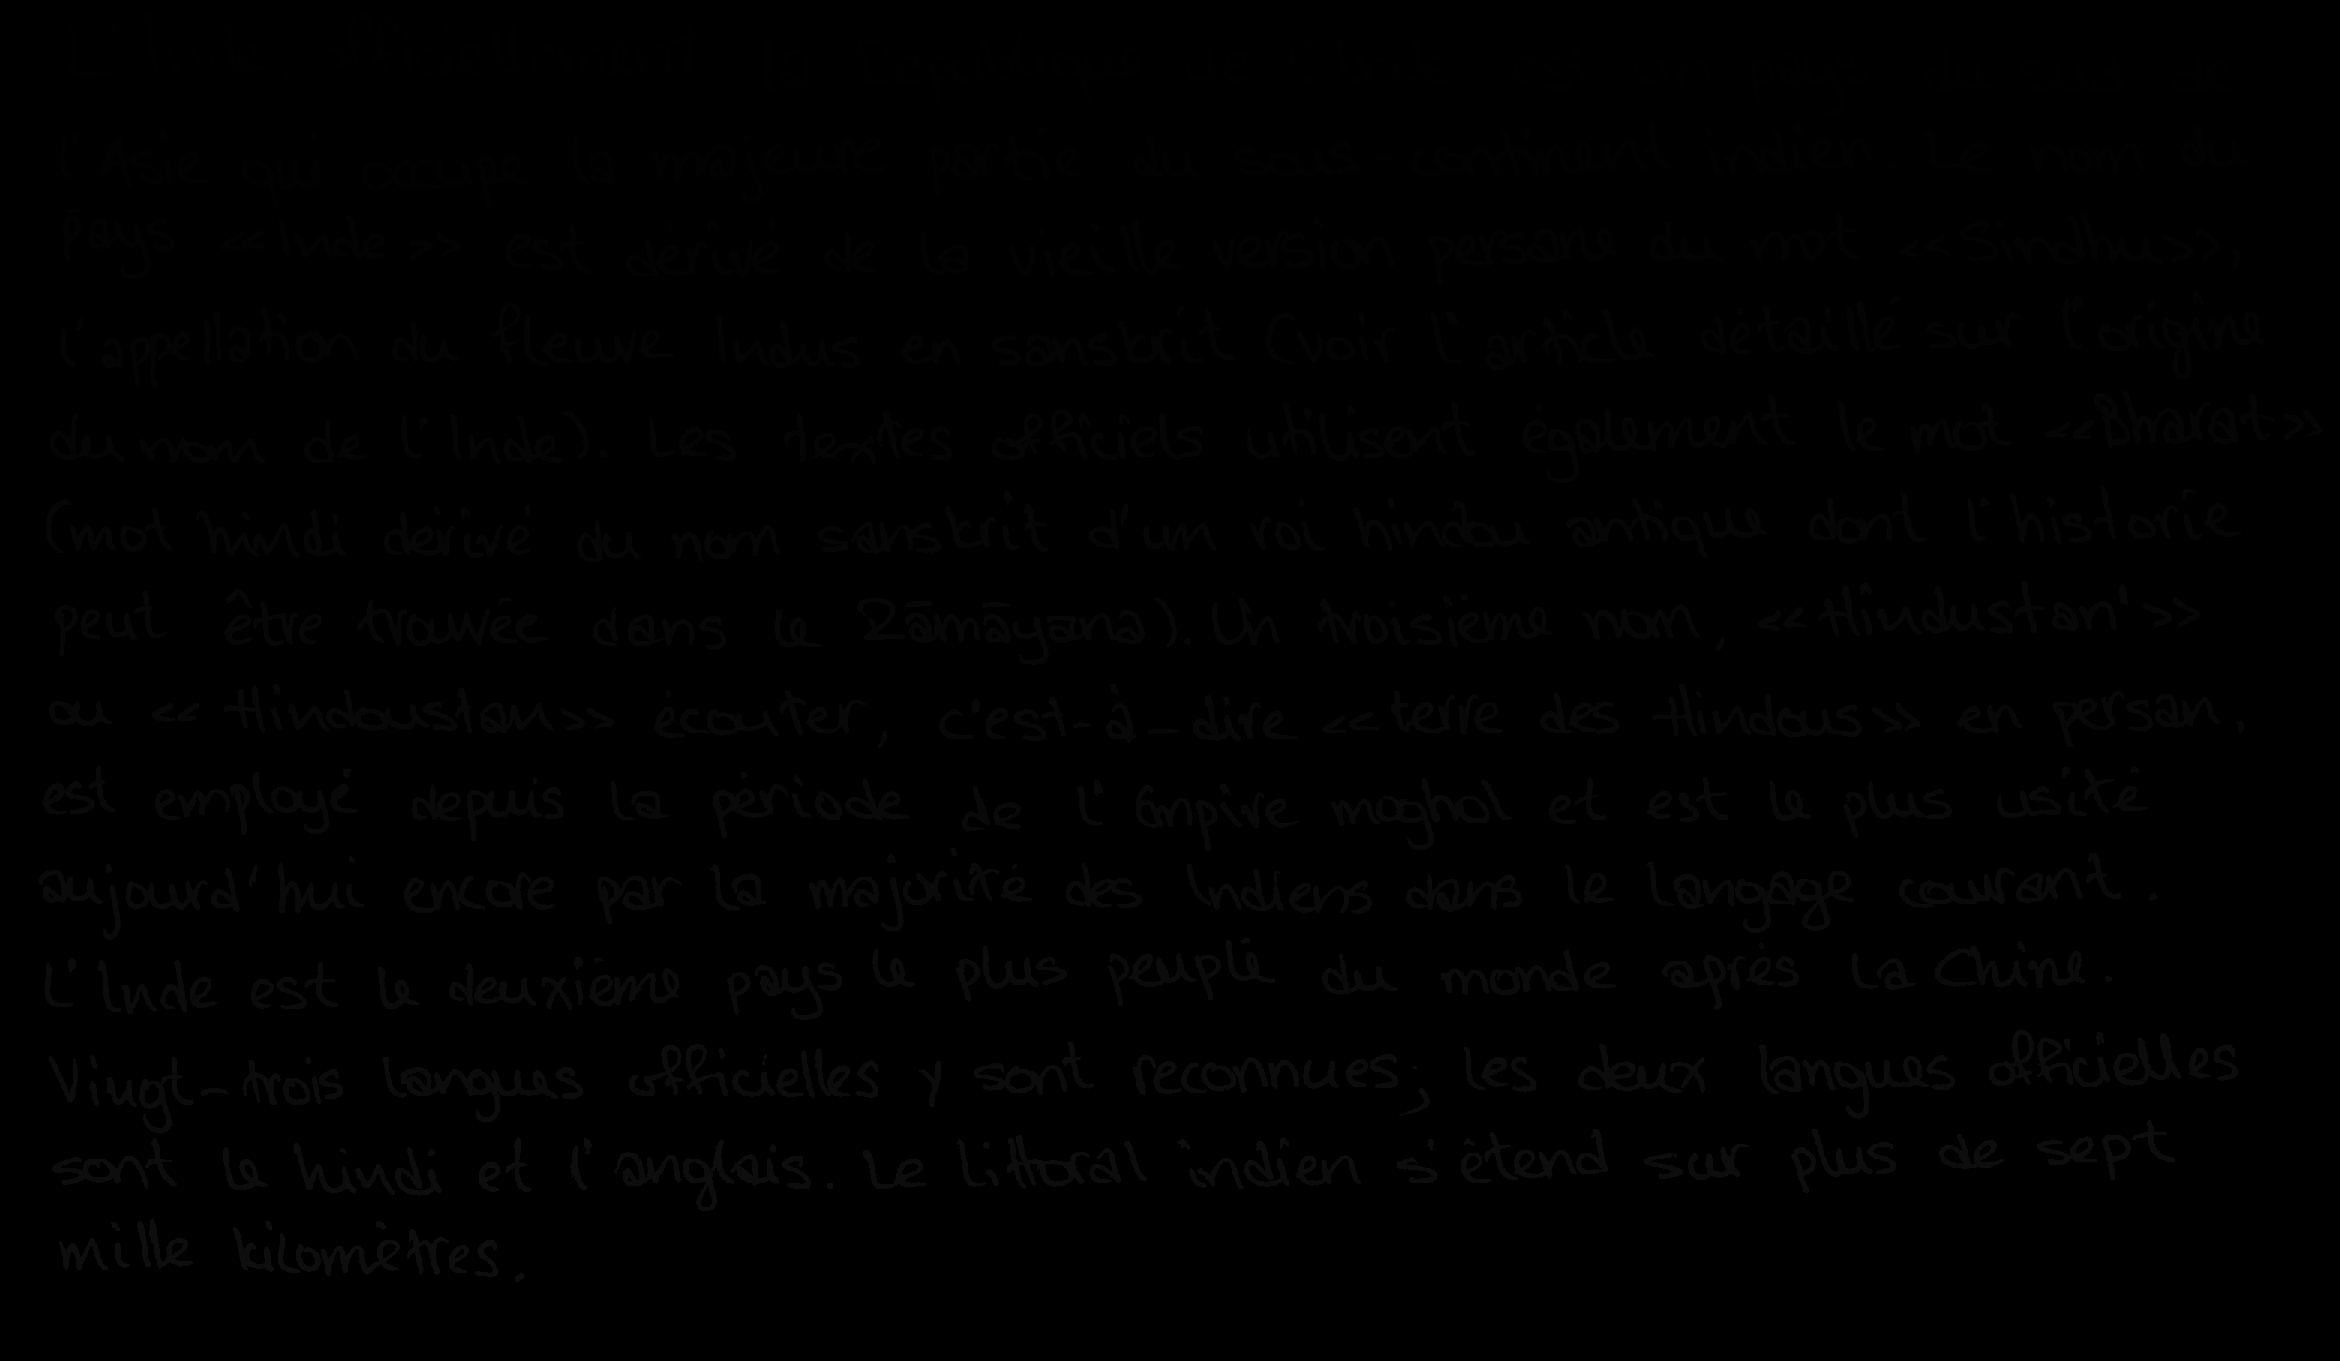 L'Inde, officiellement la République de l'Inde est un pays du sud de
l'Asie qui occupe la majeure partie du sous-continent indien. Le nom du
pays <<Inde>> est dérivé de la vieille version persane du mot <<Sindhu>>,
l'appellation du fleuve Indus en sanskrit (voir l'article détaillé sur l'origine
du nom de l'Inde). Les textes officiels utilisent également le mot <<Bharat>>
(mot hindi dérivé du nom sanskrit d'un roi hindou antique dont l'historie
peut être trouvée dans le Rāmāyana). Un troisième nom, <<Hindustan'>>
ou <<Hindoustan>> écouter, c'est-à-dire <<terre des Hindous>> en persan,
est employé depuis la période de l'Empire moghol et est le plus usité
aujourd'hui encore par la majorité des Indiens dans le langage courant.
L'Inde est le deuxième pays le plus peuplé du monde après la Chine.
Vingt-trois langues officielles y sont reconnues; les deux langues officielles
sont le hindi et l'anglais. Le littoral indien s'étend sur plus de sept
mille kilomètres.